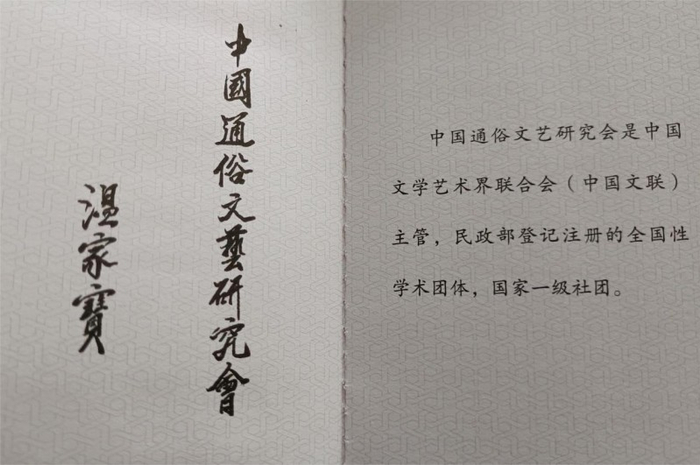 中國通俗文藝研究會
温家寶
中国通俗文艺研究会是中国
文学艺术界联合会（中国文联）
主管，民政部登记注册的全国性
学术团体，国家一级社团。